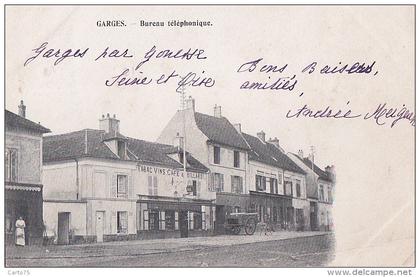 GARGES. — Bureau téléphonique.
Garges par Gonesse
Seine et Oise
Bons Baisers,
amitiés,
Andrée
TABAC VINS CAFÉ & BILLARD
Carto75
©delcampe.net